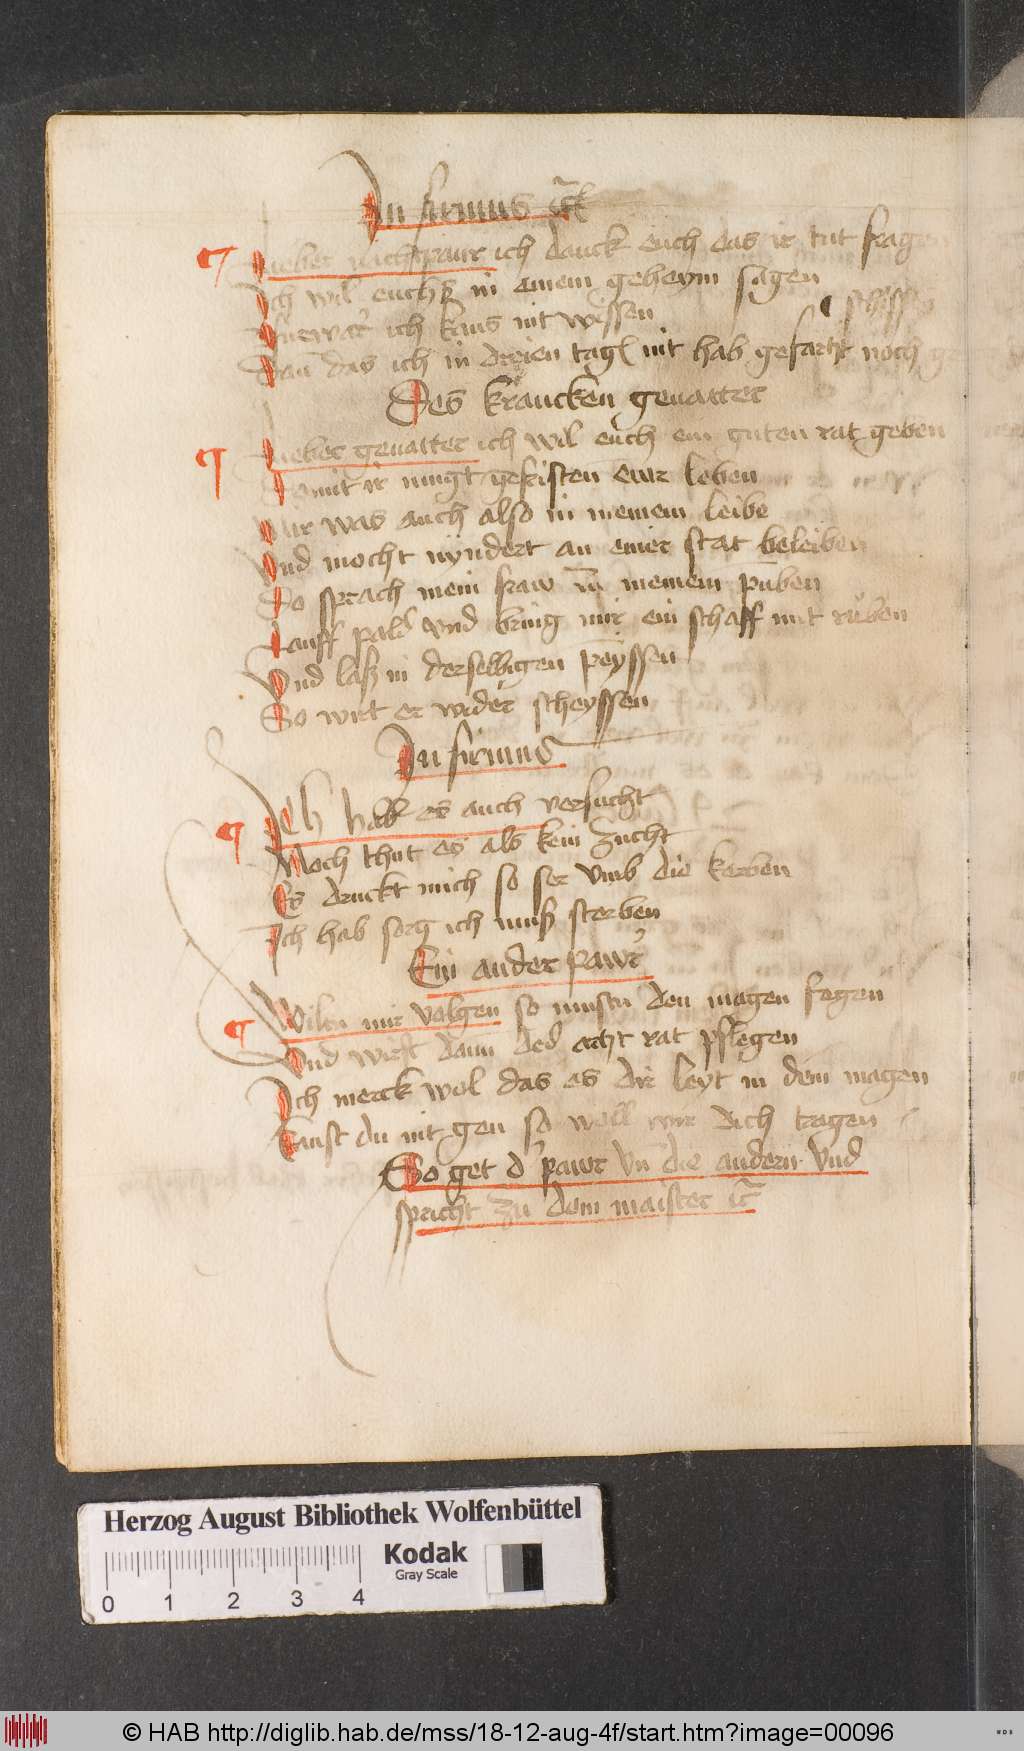 In firmus
Lieber nachtpaur ich danck euch das ir tut fragen
Ich wil euchs in einem geheym sagen
Furwar ich kans nit wissen
schissen
Dan das ich in dreien tagn nit hab gefartzt noch
Des krancken gevatter
Lieber gevatter ich wil euch ein guten rat geben
Domit ir mugt gefristen ewr leben
Mir was auch also in meinem leibe
Und mocht nyndert an einer stat beleiben
Do sprach mein fraw zu meinem puben
Lauff pald und bring mir ein schaff mit ruben
Und laß in derselbigen peyssen
So wirt er wider scheyssen
In firmus
Ich hab es auch versucht
Noch thut es als kein zucht
Es druckt mich so ser umb die kerben
Ich hab sorg ich muß sterben
Ein ander pawr
Wiltu mir volgen so mustu den magen fegen
Und wirst dann des artzt rat pflegen
Ich merck wol das es dir leyt in dem magen
Kanst du nit gen so woll wir dich tragen
So get d' pawr vn die andern und
spricht zu dem maister
Herzog August Bibliothek Wolfenbüttel
Kodak
Gray Scale
0 1 2 3 4
© HAB http://diglib.hab.de/mss/18-12-aug-4f/start.htm?image=00096